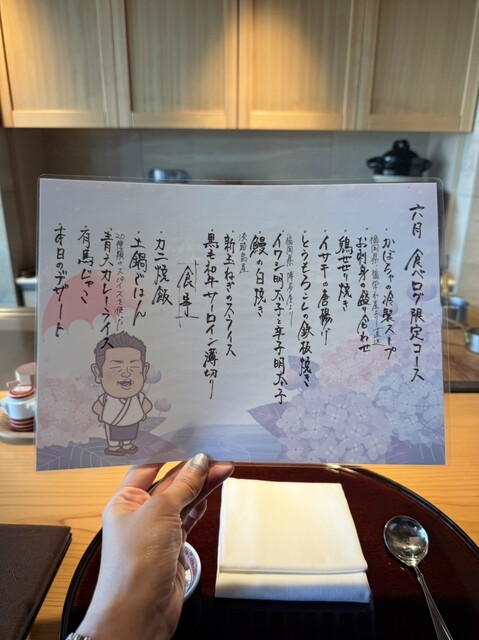 六月 食べログ限定コース
・かぼちゃの冷製スープ
・お刺身の盛り合わせ
・鶏せせり焼き
・イサキの唐揚げ
・とうもろこしの鉄板焼き
福岡県 博多屋より
・イワシ明太子と辛子明太子
・鰻の白焼き
淡路島産
・新玉ねぎのスライス
・黒毛和牛サーロイン薄切り
食事
・カニ焼飯
・土鍋ごはん
20種類のスパイスを使った
・青六カレーライス
・有馬じゃこ
・本日のデザート